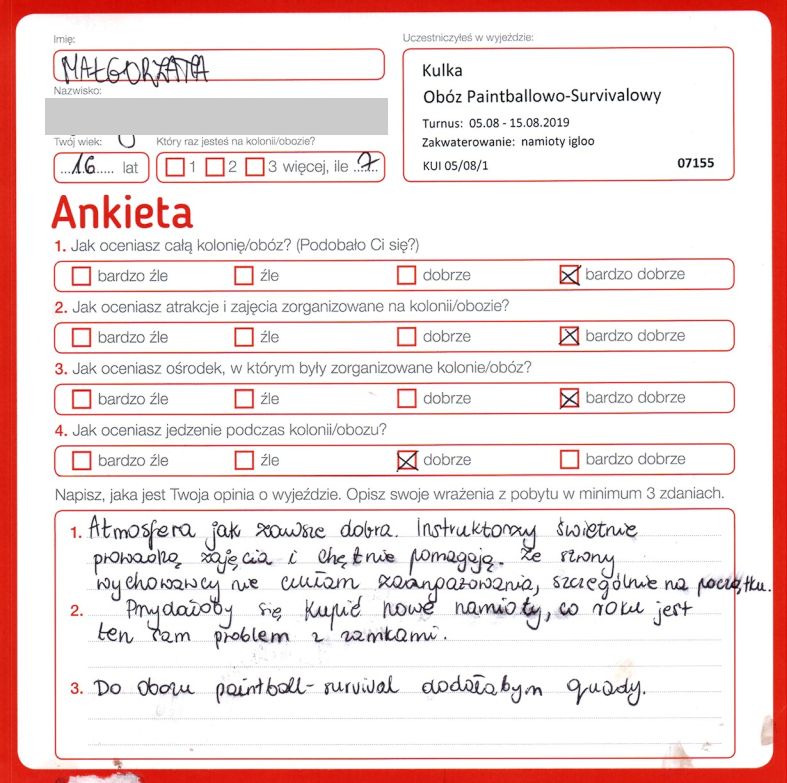 Imię:
MAŁGORZATA
Nazwisko:
Twój wiek:
16 lat
Który raz jesteś na kolonii/obozie?
1 2 3 więcej, ile 7
Uczestniczyłeś w wyjeździe:
Kulka
Obóz Paintballowo-Survivalowy
Turnus: 05.08 - 15.08.2019
Zakwaterowanie: namioty igloo
KUI 05/08/1 07155
Ankieta
1. Jak oceniasz całą kolonię/obóz? (Podobało Ci się?)
bardzo źle źle dobrze bardzo dobrze
2. Jak oceniasz atrakcje i zajęcia zorganizowane na kolonii/obozie?
bardzo źle źle dobrze bardzo dobrze
3. Jak oceniasz ośrodek, w którym były zorganizowane kolonie/obóz?
bardzo źle źle dobrze bardzo dobrze
4. Jak oceniasz jedzenie podczas kolonii/obozu?
bardzo źle źle dobrze bardzo dobrze
Napisz, jaka jest Twoja opinia o wyjeździe. Opisz swoje wrażenia z pobytu w minimum 3 zdaniach.
1. Atmosfera jak zawsze dobra. Instruktorzy świetnie
prowadzą zajęcia i chętnie pomagają. Ze strony
wychowawcy nie czułam zaangażowania, szczególnie na początku.
2. Przydałoby się kupić nowe namioty, co roku jest
ten sam problem z zamkami.
3. Do obozu paintball-survival dodałabym quady.